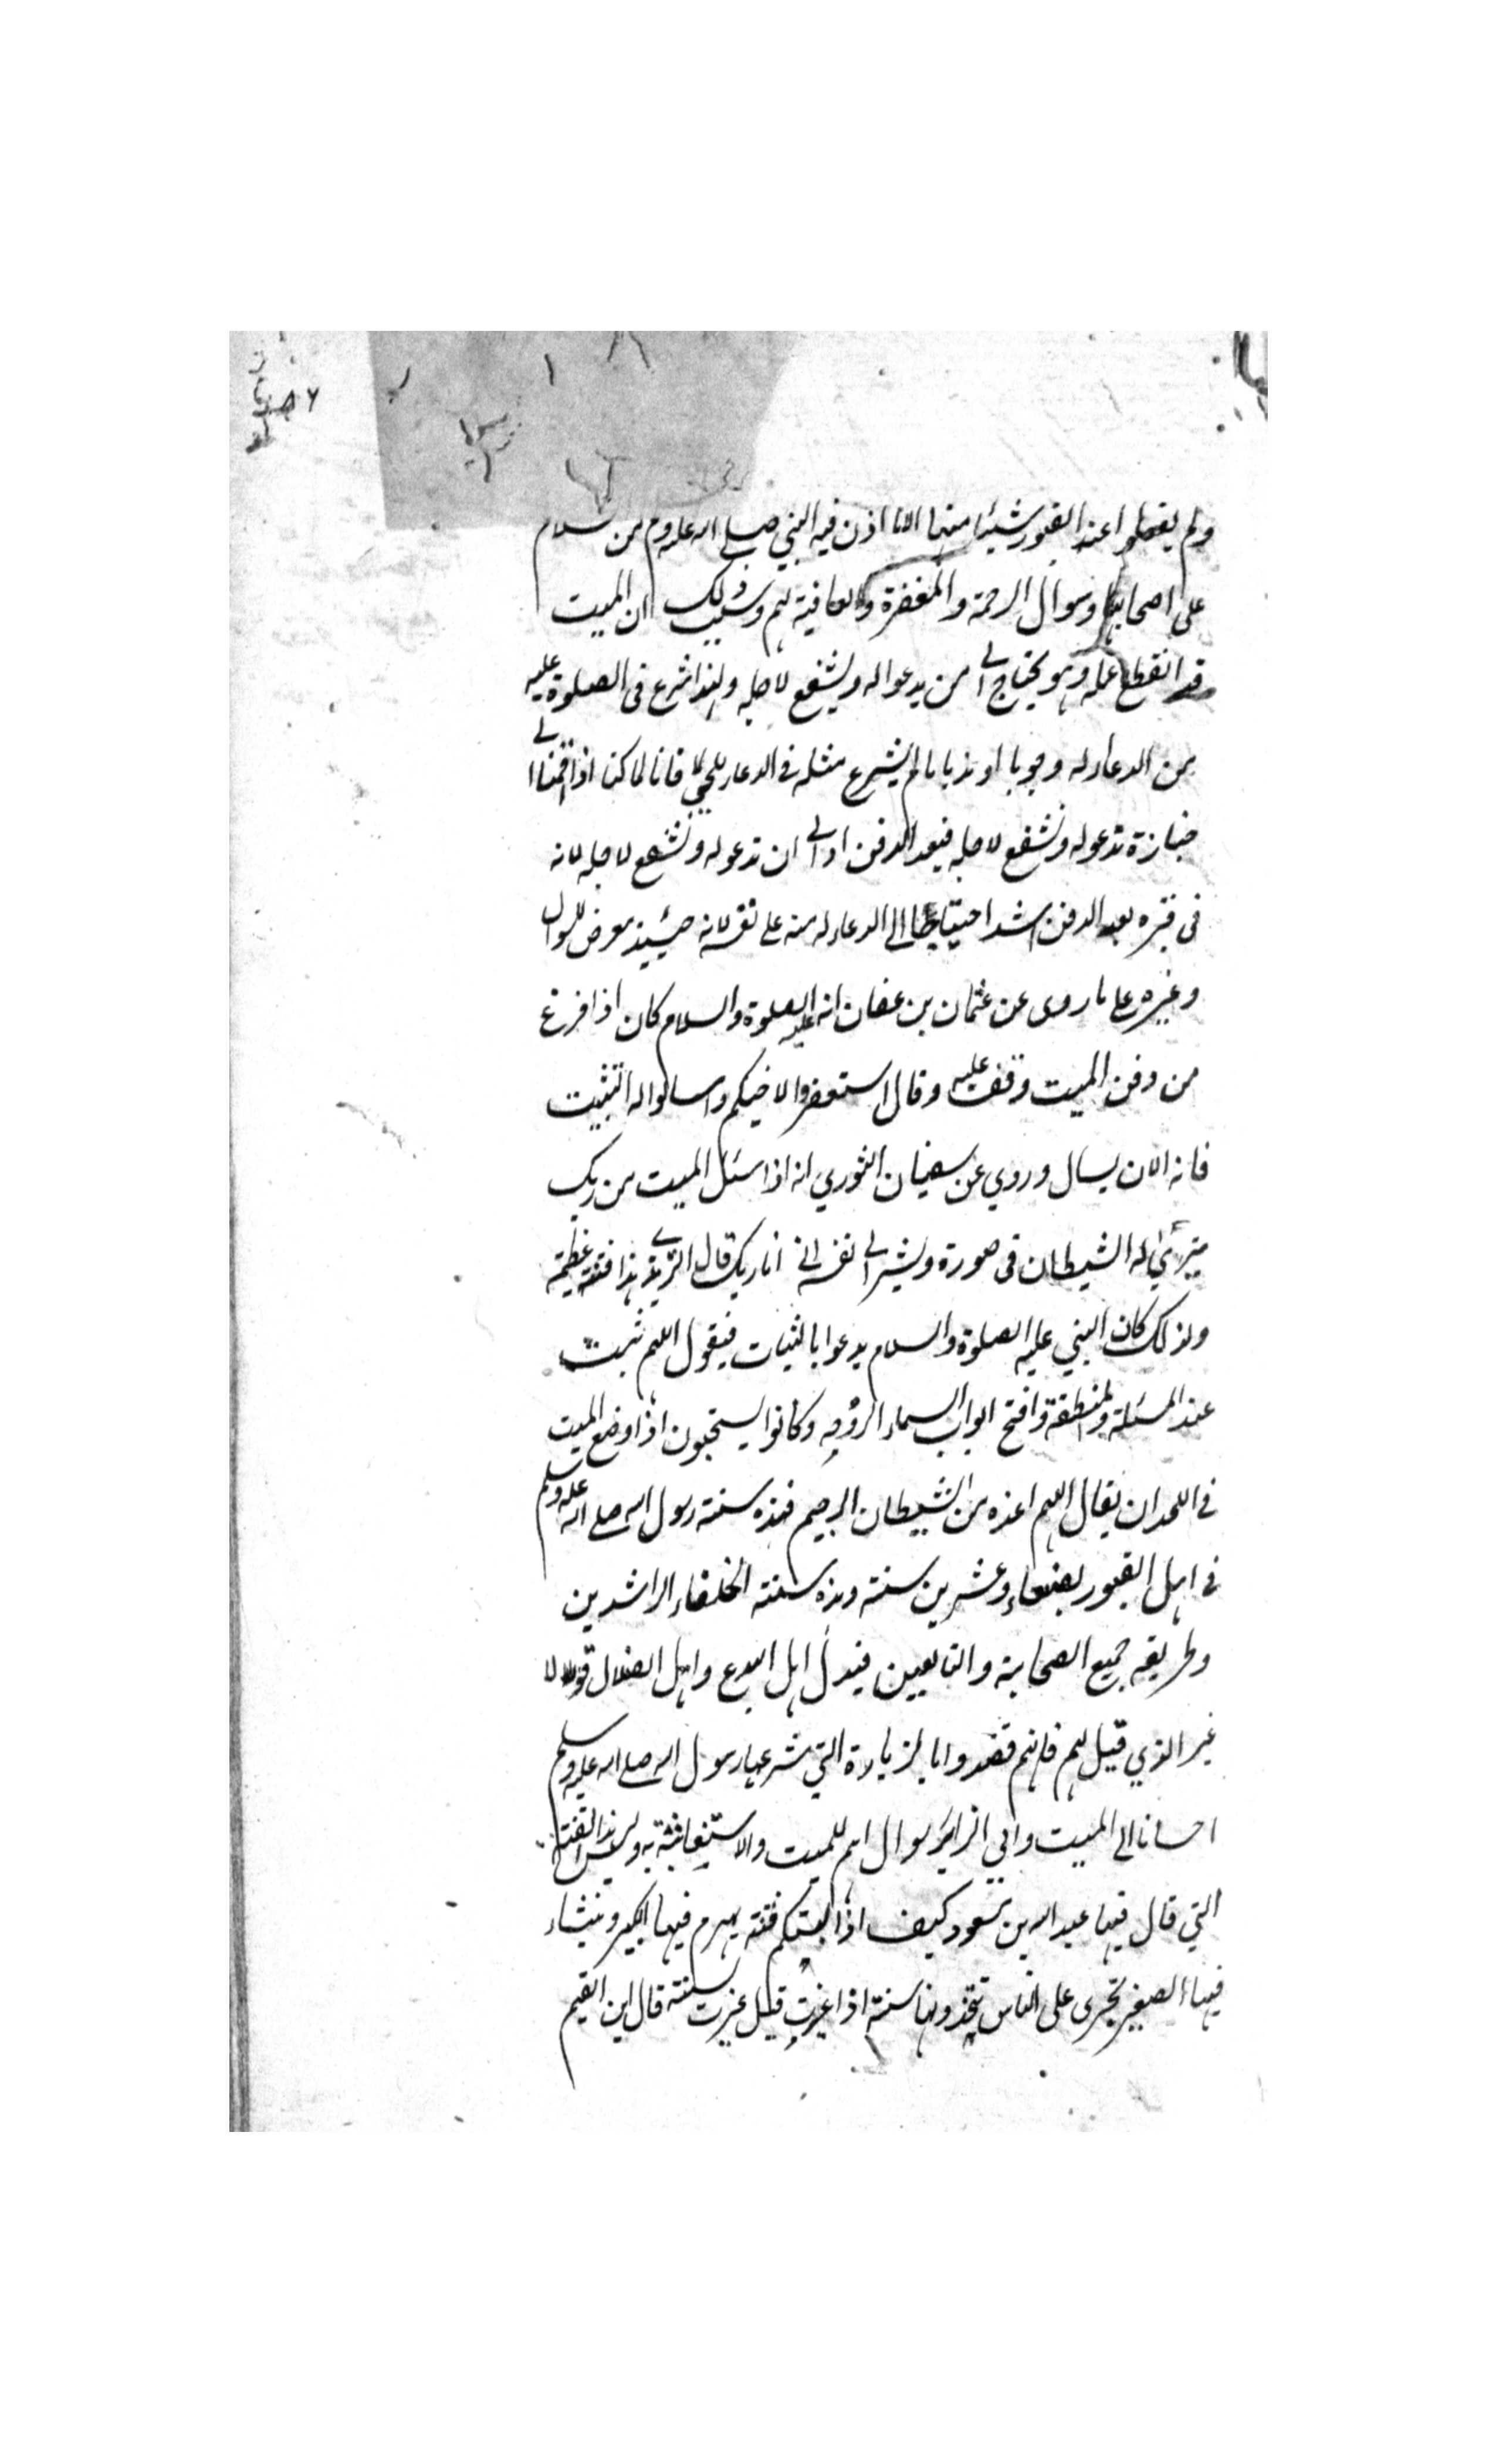 ولم يفعلوا عند القبور شيئا منها الا ما اذن فيه النبي صلى الله عليه وسلم من السلام
على اصحابها وسوال الرحمة والمغفرة والعافية لهم وسبب ذلك ان الميت
قد انقطع عمله وهو يحتاج الى من يدعوا له ويشفع لاجله ولهذا شرع فى الصلوة عليه
من الدعاء له وجوبا او ندبا ما لم يشرع مثله فى الدعاء للحى فانا لما كنا اذا قمنا الى
جنازة ندعو له ونشفع لاجله فبعد الدفن اولى ان ندعو له ونشفع لاجله لانه
فى قبره بعد الدفن اشد احتياجا الى الدعاء له منه على نعشه لانه حينئذ معرض للسوال
وغيره على ما روى عن عثمان بن عفان انه عليه الصلوة والسلام كان اذا فرغ
من دفن الميت وقف عليه وقال استغفروا لاخيكم واسالوا له التثبيت
فانه الان يسال وروي عن سفيان الثوري انه اذا سئل الميت من ربك
يترأى له الشيطان فى صورة ويشير الى نفسه اني انا ربك قال الترمذي هذا فتنة عظيمة
ولذلك كان النبي عليه الصلوة والسلام يدعوا بالثبات فيقول اللهم ثبت
عند المسئلة منطقه وافتح ابواب السماء لروحه وكانوا يستحبون اذا وضع الميت
فى اللحد ان يقال اللهم اعذه من الشيطان الرجيم فهذه سنة رسول الله صلى الله عليه وسلم
فى اهل القبور بضعا وعشرين سنة وهذه سنة الخلفاء الراشدين
وطريقة جميع الصحابة والتابعين فبدل اهل البدع واهل الضلال قولا
غير الذي قيل لهم فانهم قصدوا بالزيارة التي شرعها رسول الله صلى الله عليه وسلم
احسانا الى الميت والى الزاير سوال لهم للميت والاستغاثة به وليس هذا الفتنة
التي قال فيها عبد الله بن مسعود كيف اذا لبستكم فتنة يهرم فيها الكبير وينشاء
فيها الصغير تجرى على الناس يتخذونها سنة اذا غيرت قيل غيرت سنة قال ابن القيم